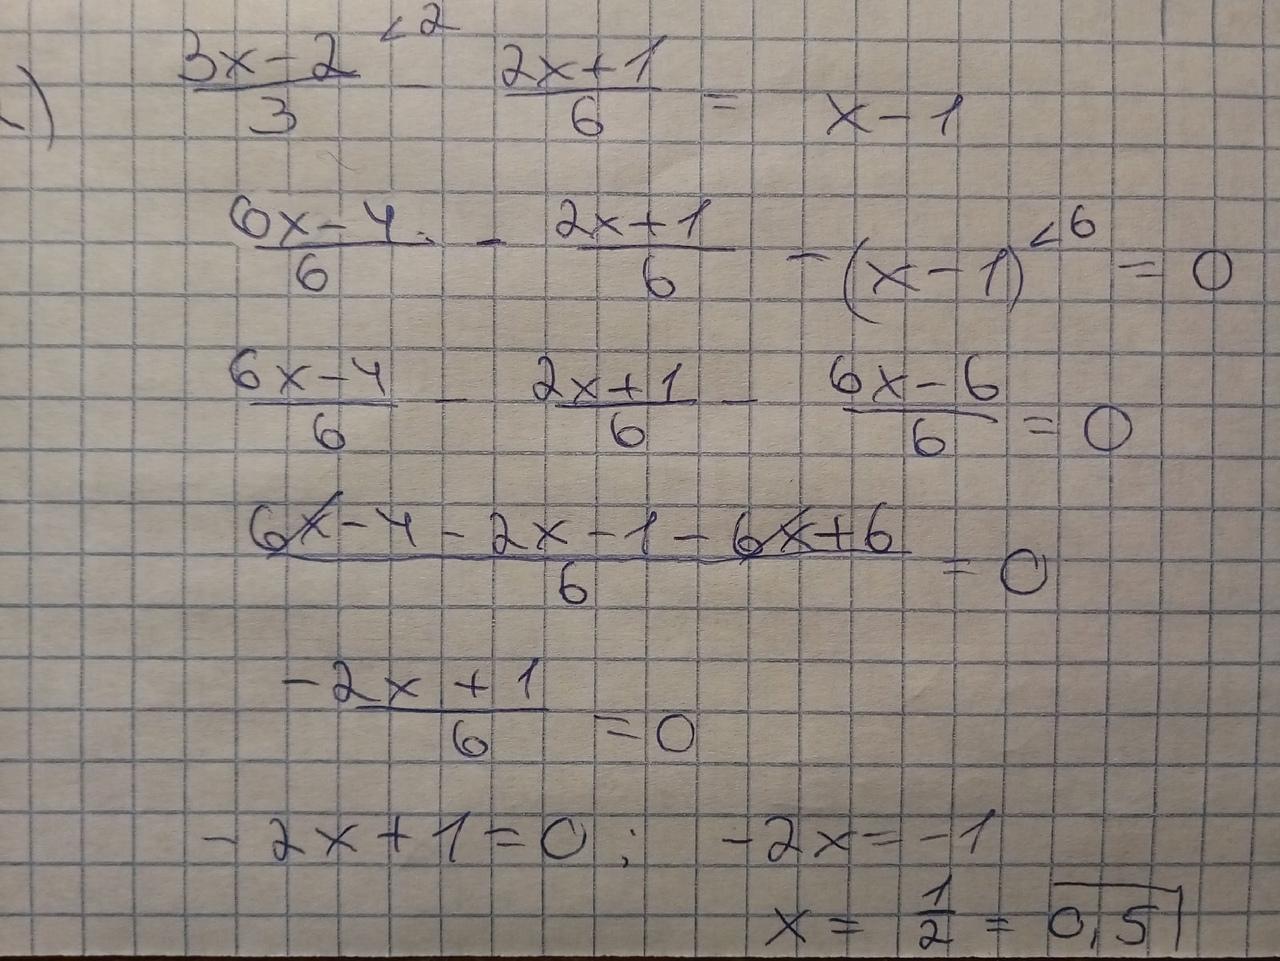 ) (3x-2)/3 <2 - (2x+1)/6 = x-1
(6x-4)/6 - (2x+1)/6 - (x-1) <6 = 0
(6x-4)/6 - (2x+1)/6 - (6x-6)/6 = 0
(6x-4-2x-1-6x+6)/6 = 0
(-2x+1)/6 = 0
-2x+1=0; -2x=-1
x = 1/2 = 0,5